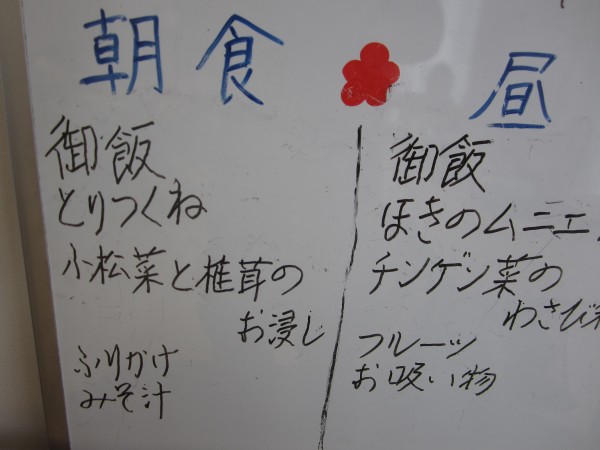 朝食
御飯
とりつくね
小松菜と椎茸の
お浸し
ふりかけ
みそ汁
昼
御飯
ほきのムニエ
チンゲン菜の
わさび
フルーツ
お吸い物